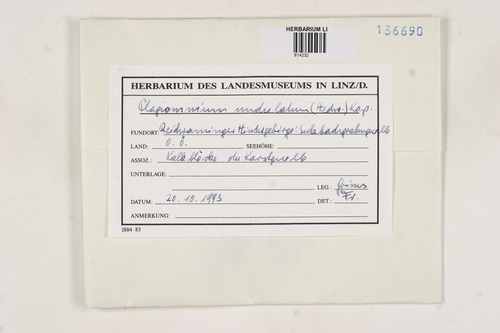 HERBARIUM LI
814232
136690
HERBARIUM DES LANDESMUSEUMS IN LINZ/D.
Plagiomnium undulatum (Hedw.) Kop.
FUNDORT: Reichraminger Hintergebirge:
LAND: O.Ö. SEEHÖHE:
ASSOZ.: Kalkblöcke der Karstquelle
UNTERLAGE:
LEG.: Grims
DATUM: 20.10.1993 DET.: Fr.
ANMERKUNG:
I884 83